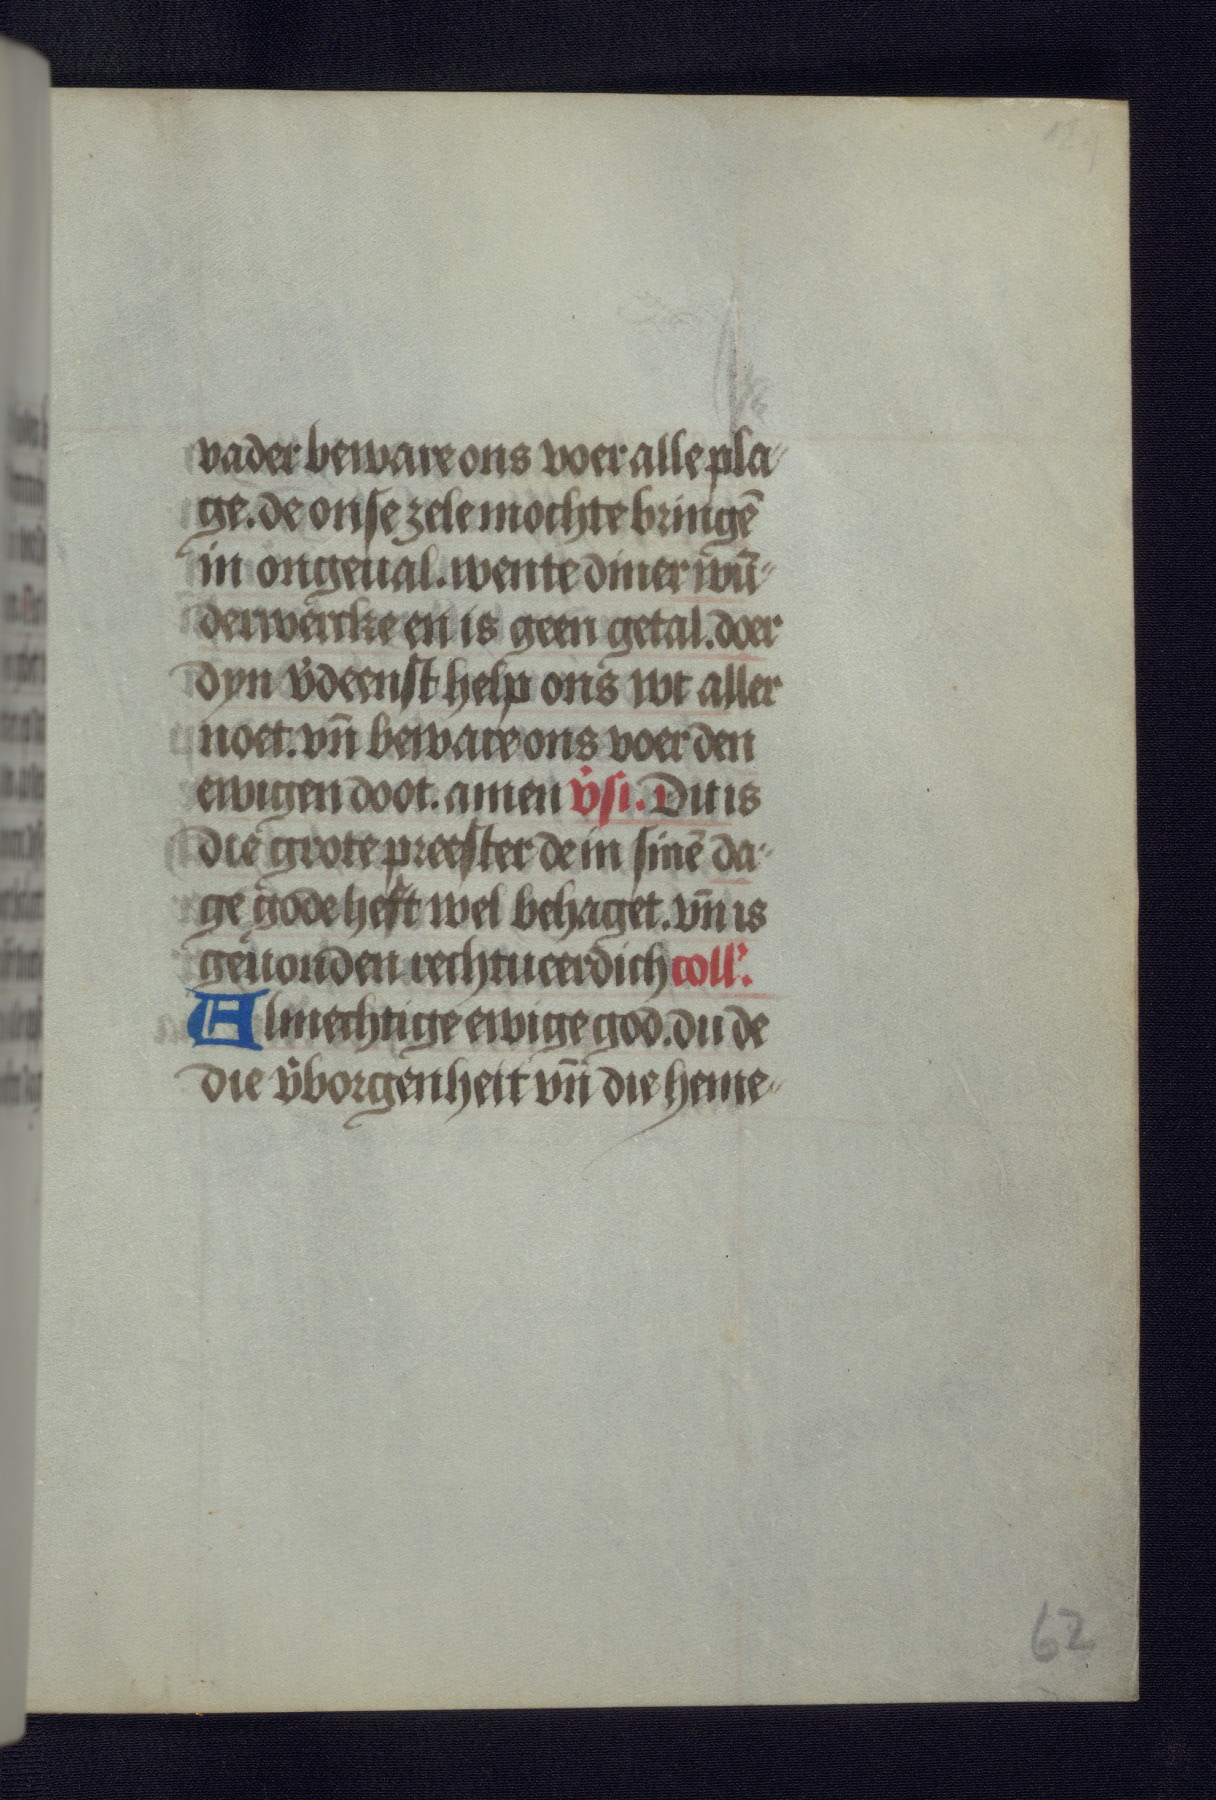 vader beware ons voer alle pla-
ge. de onse zele mochte bringē
in ongeual. wente diner wū-
derwercke en is geen getal. doer
dyn v̾deenst help ons wt aller
noet. vn̄ beware ons voer den
ewigen doot. amen v̾si. Dit is
die grote preester de in sinē da-
ge gode heft wel behaget. vn̄ is
geuonden rechtuerdich coll'.
Almechtige ewige god. du de
die v̾borgenheit vn̄ die heme-
62